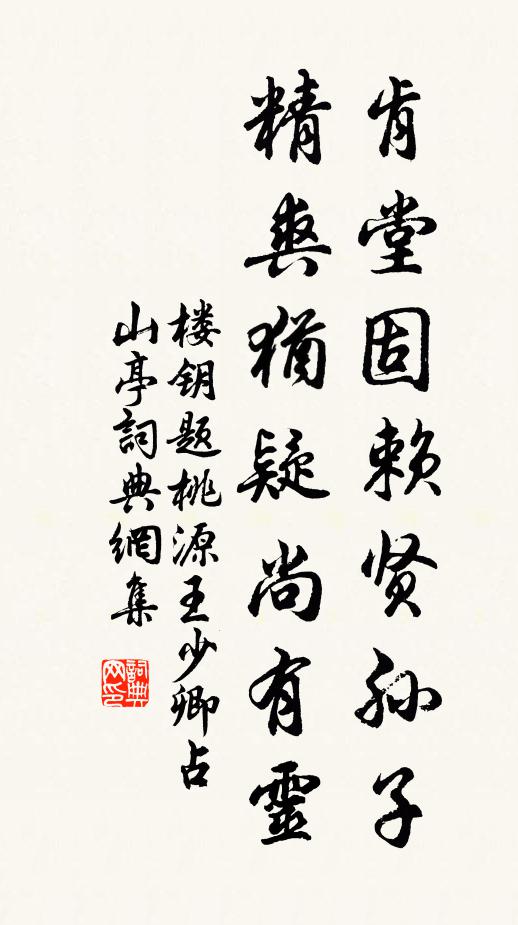 肯堂固赖贤孙子
精爽犹疑尚有靈
楼钥题桃源王少卿占
山亭詞典網集
詞典网印